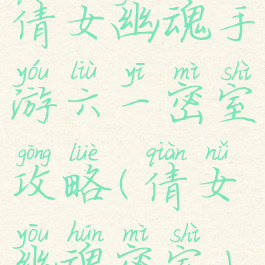 倩女幽魂手
yóu liù yī mì shì
游六一密室
gōng lüè qiàn nǚ
攻略(倩女
yōu hún mì shì
幽魂密室)